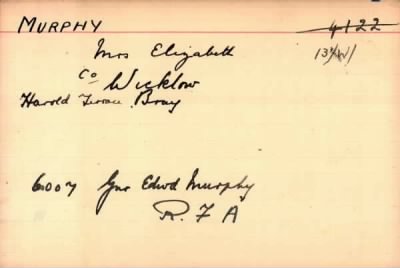 MURPHY 4122
Mrs Elizabeth
Co Wicklow
Harold Terrace Bray
6007 Gnr Edwd Murphy
R.F.A